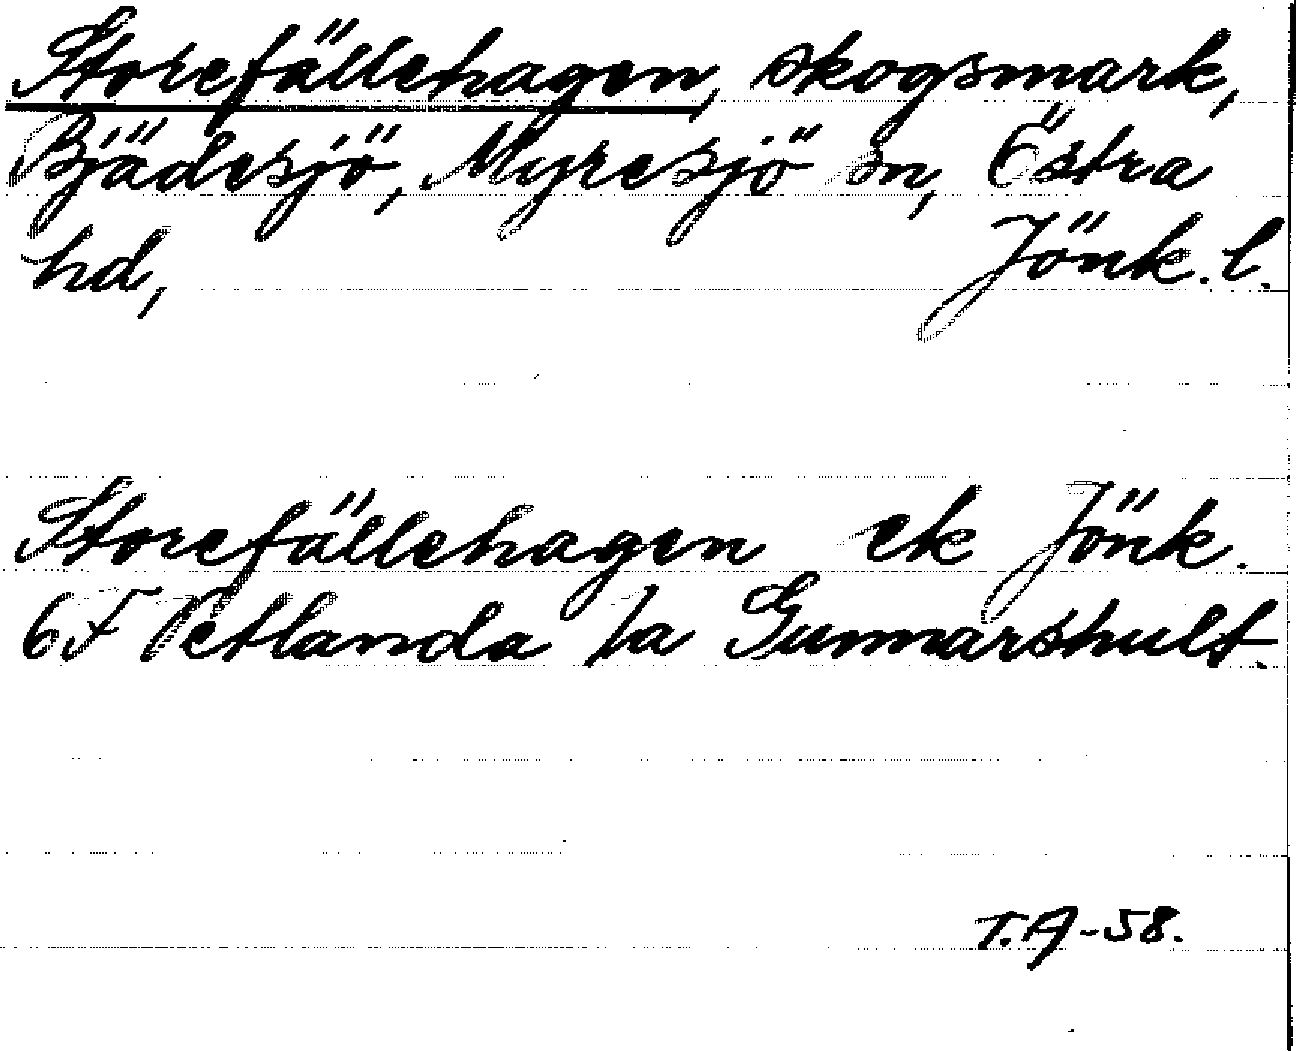 Storefällehagen, skogsmark,
Bjädesjö, Myresjö sn, Östra
hd, Jönk. l.
Storefällehagen ek Jönk.
6F Vetlanda /a Gunnarshult.
T.A-58.